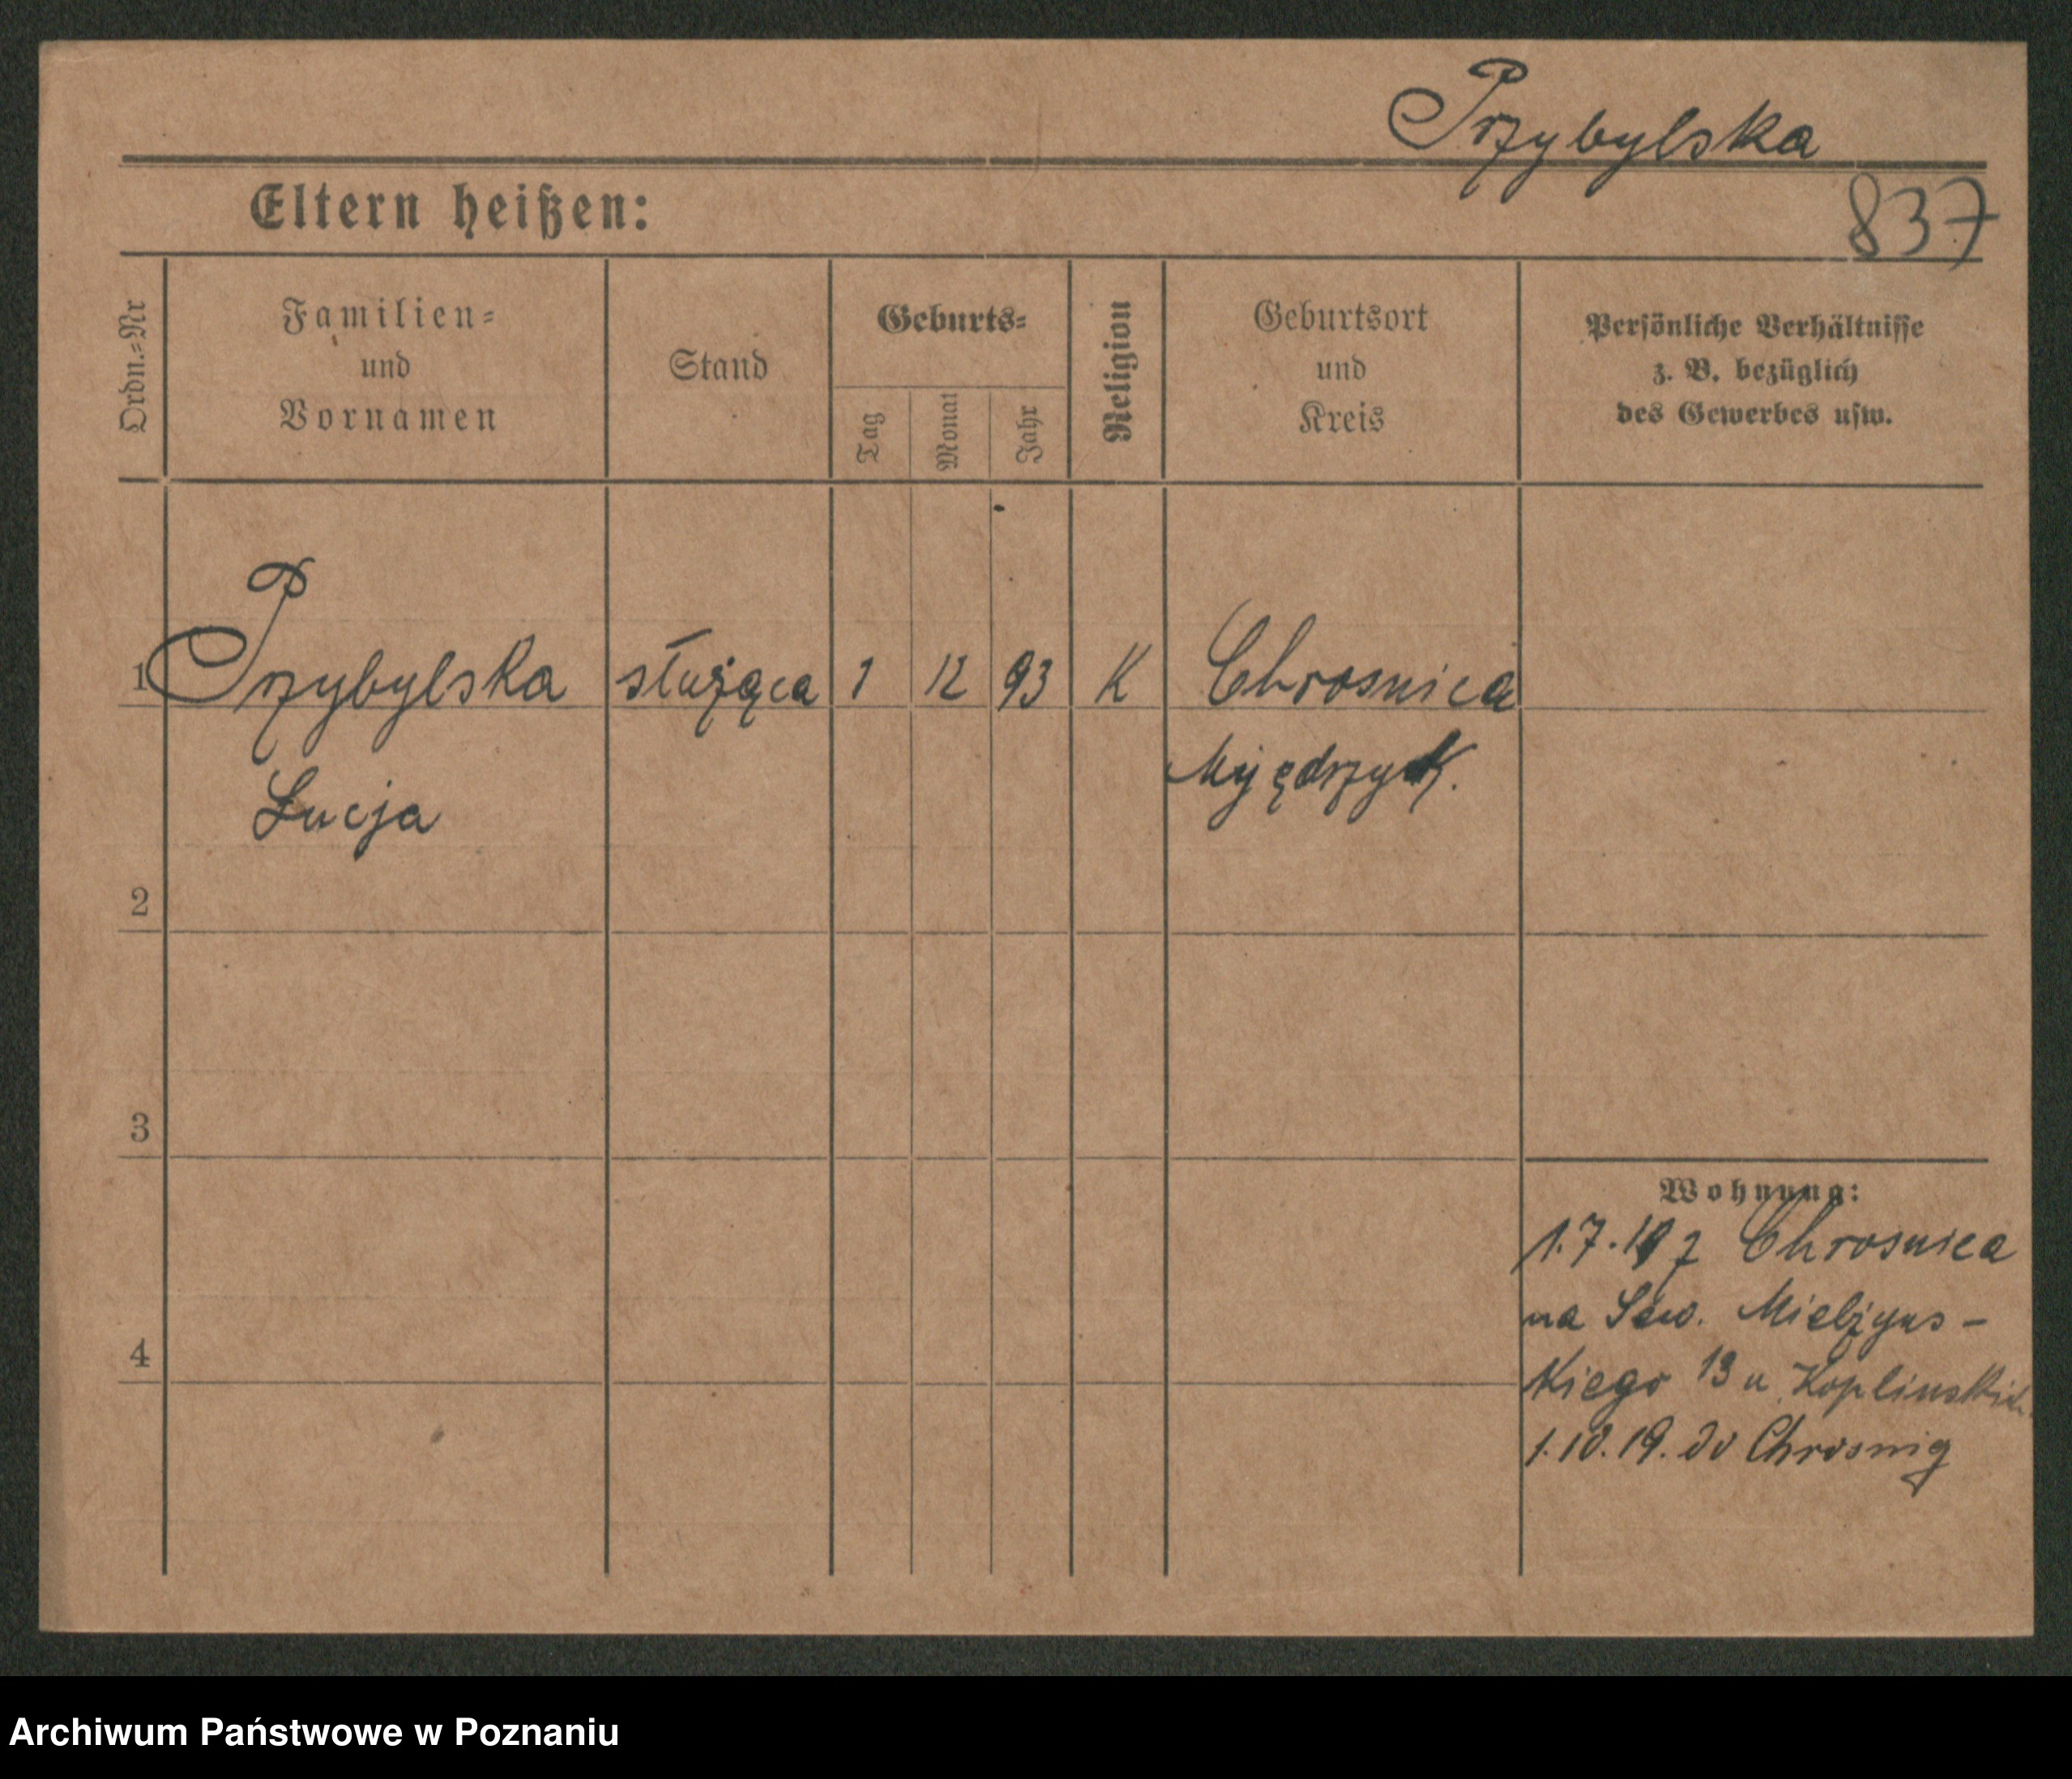 Przybylska
Eltern heißen:
837
Ordn.=Nr
Familien=
und
Vornamen
Stand
Geburts=
Tag
Monat
Jahr
Religion
Geburtsort
und
Kreis
Persönliche Verhältnisse
z. B. bezüglich
des Gewerbes usw.
1 Przybylska służąca 1 12 93 K Chrosnica
Lucja
2
3
4
Wohnung:
1.7. z Chrosnica
na Sew. Mielżyns-
kiego 13 u Koplinskich
1.10.19. do Chrosnig
Archiwum Państwowe w Poznaniu